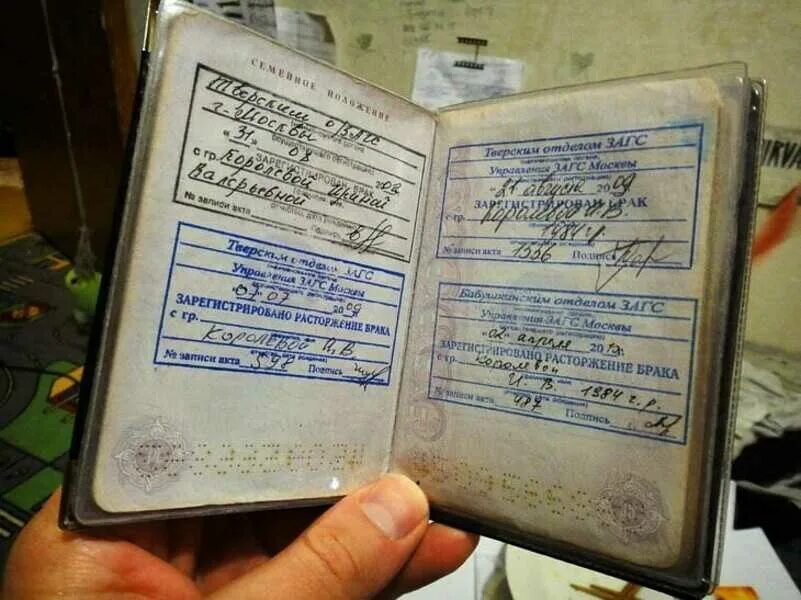 СЕМЕЙНОЕ ПОЛОЖЕНИЕ
Тверским о/ЗАГС
г. Москвы
"31" 08
ЗАРЕГИСТРИРОВАН БРАК
с гр. Королевой Ириной
Валерьевной
№ записи акта
Подпись
Тверским отделом ЗАГС
Управления ЗАГС Москвы
"07" 07 2009
ЗАРЕГИСТРИРОВАНО РАСТОРЖЕНИЕ БРАКА
с гр. Королевой И.В.
№ записи акта 598 Подпись
Тверским отделом ЗАГС
Управления ЗАГС Москвы
"21" августа 2009
ЗАРЕГИСТРИРОВАН БРАК
с гр. Королевой И.В.
1984 г.р.
№ записи акта 1556 Подпись
Бабушкинским отделом ЗАГС
Управления ЗАГС Москвы
"02" апреля
ЗАРЕГИСТРИРОВАНО РАСТОРЖЕНИЕ БРАКА
с гр. Королевой
И. В. 1984 г.р.
№ записи акта 487 Подпись